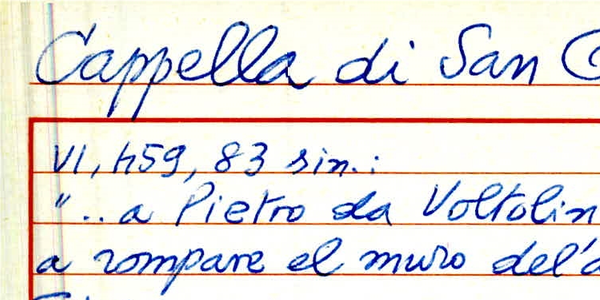 Cappella di San
VI, 459, 83 sin.:
".. a Pietro da Voltolin
a rompare el muro del'a